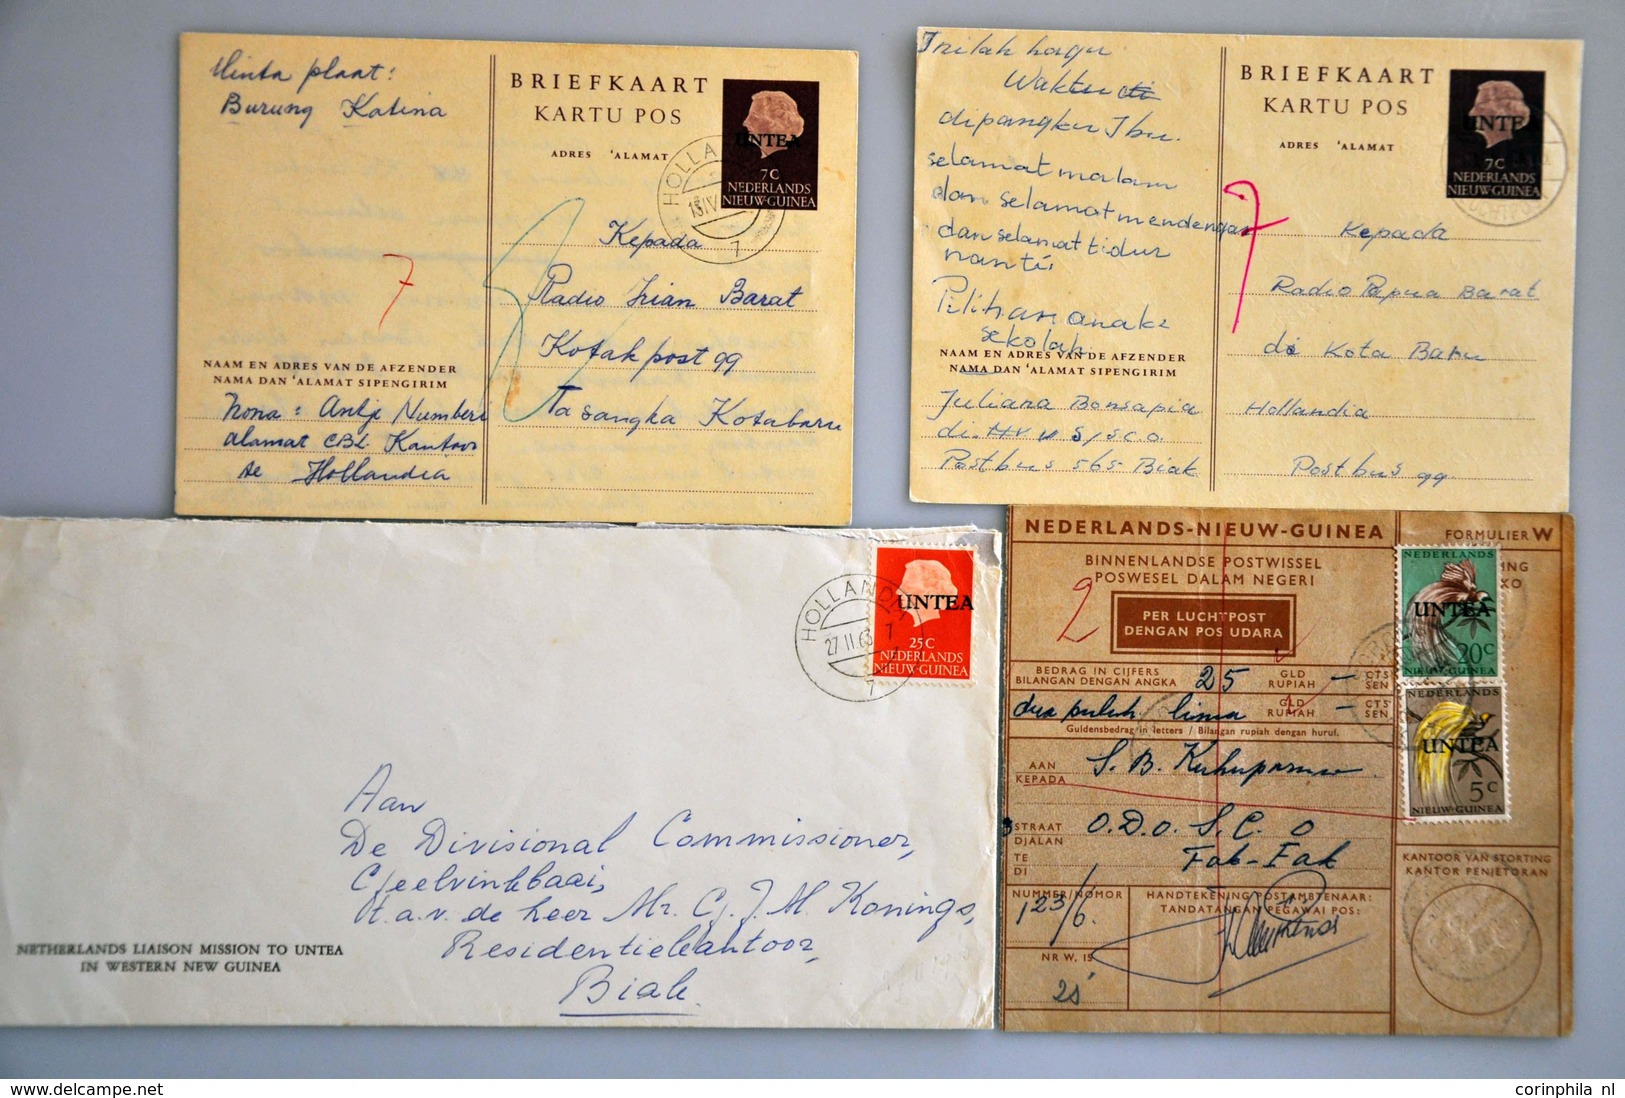 Minta plaat:
Burung Katina
BRIEFKAART
KARTU POS
ADRES 'ALAMAT
UNTEA
7C
NEDERLANDS
NIEUW-GUINEA
HOLLANDIA
7
Kepada
Radio Irian Barat
Kotakpost 99
Tasangka Kotabaru
7
NAAM EN ADRES VAN DE AFZENDER
NAMA DAN 'ALAMAT SIPENGIRIM
Nona: Antje Numberi
alamat CBL. Kantoor
te Hollandia
Inilah lagu
Waktu di
dipangku Ibu.
selamat malam
dan selamat mendengar
dan selamat tidur
nanti.
Pilihan anak2
sekolah
BRIEFKAART
KARTU POS
ADRES 'ALAMAT
UNTEA
7C
NEDERLANDS
NIEUW-GUINEA
7
Kepada
Radio Papua Barat
di Kota Baru
Hollandia
Postbus 99
NAAM EN ADRES VAN DE AFZENDER
NAMA DAN 'ALAMAT SIPENGIRIM
Juliana Bonsapia
Postbus 565 Biak
HOLLANDIA
27.II.63
7
UNTEA
25C
NEDERLANDS
NIEUW-GUINEA
Aan
De Divisional Commissioner,
Geelvinkbaai,
t.a.v. de heer Mr. G.J.M. Konings,
Residentiekantoor,
Biak.
NETHERLANDS LIAISON MISSION TO UNTEA
IN WESTERN NEW GUINEA
NEDERLANDS-NIEUW-GUINEA
FORMULIER W
BINNENLANDSE POSTWISSEL
POSWESEL DALAM NEGERI
2
PER LUCHTPOST
DENGAN POS UDARA
NEDERLANDS
UNTEA
20C
NIEUW-GUINEA
NEDERLANDS
UNTEA
5C
NIEUW-GUINEA
BEDRAG IN CIJFERS
BILANGAN DENGAN ANGKA
25
GLD
RUPIAH
CTS
SEN
dua puluh lima
GLD
RUPIAH
CTS
SEN
Guldensbedrag in letters / Bilangan rupiah dengan huruf.
AAN
KEPADA
S. B.
STRAAT
DJALAN
O.D.O. S.C.O
TE
DI
Fak-Fak
KANTOOR VAN STORTING
KANTOR PENJETORAN
NUMMER/NOMOR
123/6.
HANDTEKENING POSTAMBTENAAR:
TANDATANGAN PEGAWAI POS:
NR W. 15
25
corinphila nl